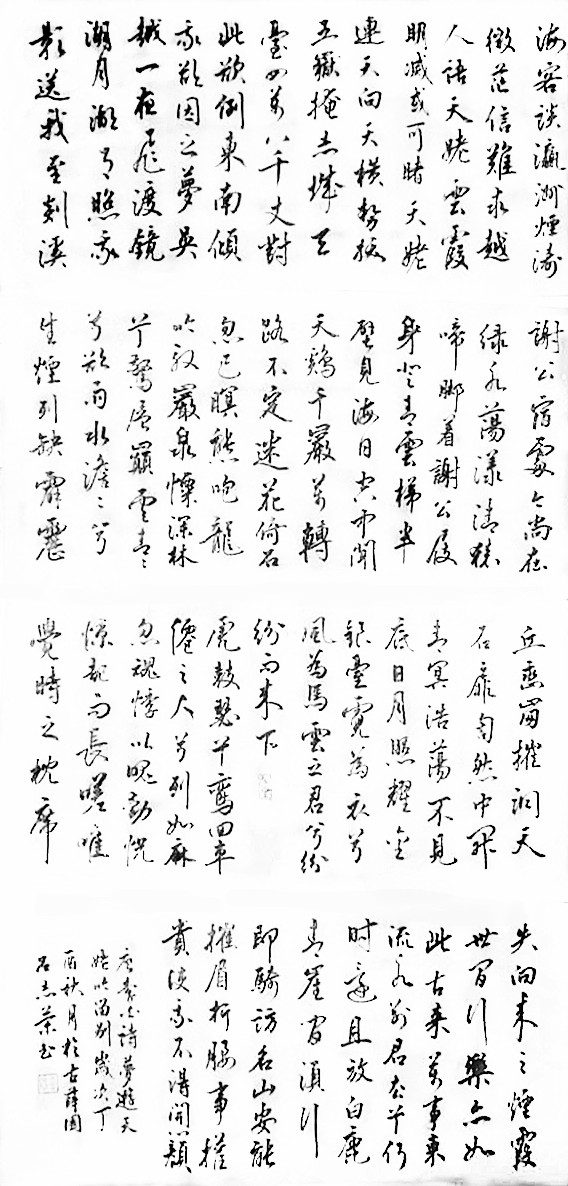 海客談瀛洲煙濤
微茫信難求越
人語天姥雲霞
明滅或可睹天姥
連天向天橫勢拔
五嶽掩赤城天
臺四萬八千丈對
此欲倒東南傾
我欲因之夢吳
越一夜飛渡鏡
湖月湖月照我
影送我至剡溪
謝公宿處今尚在
綠水蕩漾清猿
啼腳着謝公屐
身登青雲梯半
壁見海日空中聞
天鷄千巖萬轉
路不定迷花倚石
忽已暝熊咆龍
吟殷巖泉慄深林
兮驚層巔雲青々
兮欲雨水澹々兮
生煙列缺霹靂
丘巒崩摧洞天
石扉訇然中開
青冥浩蕩不見
底日月照耀金
銀臺霓為衣兮
風為馬雲之君兮紛
紛而來下
虎鼓瑟兮鸞回車
僊之人兮列如麻
忽魂悸以魄動怳
驚起而長嗟唯
覺時之枕席
失向來之煙霞
世間行樂亦如
此古來萬事東
流水別君去兮何
時還且放白鹿
青崖間須行
即騎訪名山安能
摧眉折腰事權
貴使我不得開顏
唐李白詩夢遊天
姥吟留別歲次丁
酉秋月於古薛國
呂志榮書